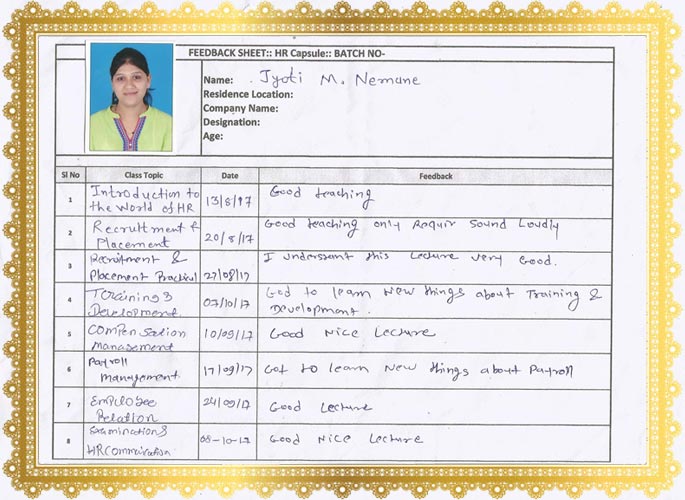 FEEDBACK SHEET:: HR Capsule:: BATCH NO-
Name: Jyoti M. Nemane
Residence Location:
Company Name:
Designation:
Age:
Sl No Class Topic Date Feedback
1 Introduction to the World of HR 13/8/17 Good teaching
2 Recruitment & Placement 20/8/17 Good teaching only Requir Sound Loudly
3 Recruitment & Placement Practical 27/08/17 I understant this Lecture very Good.
4 Training & Development. 07/10/17 God to learn New things about Training & Development.
5 Compensation Management 10/09/17 Good Nice Lecture
6 Payroll Management 17/09/17 Got to learn New things about Payroll
7 Employee Relation 24/09/17 Good Lecture
8 Examination & HR 08-10-17 Good Nice Lecture